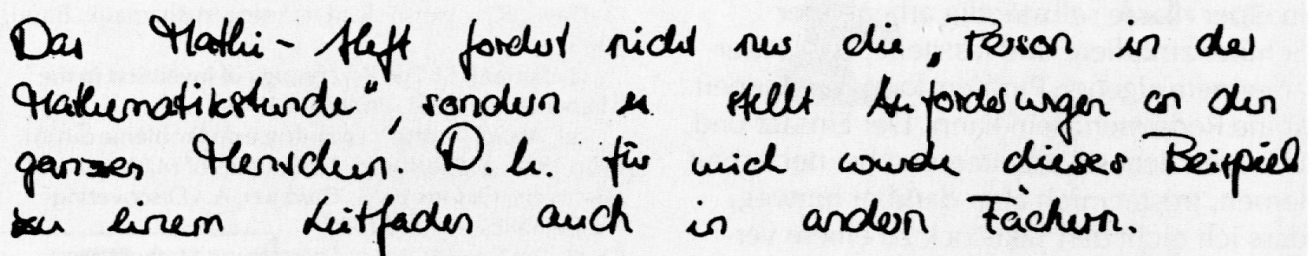 Das Mathi-Heft fordert nicht nur die „Person in der
Mathematikstunde", sondern es stellt Anforderungen an den
ganzen Menschen. D.h. für mich wurde dieses Beispiel
zu einem Leitfaden auch in andern Fächern.